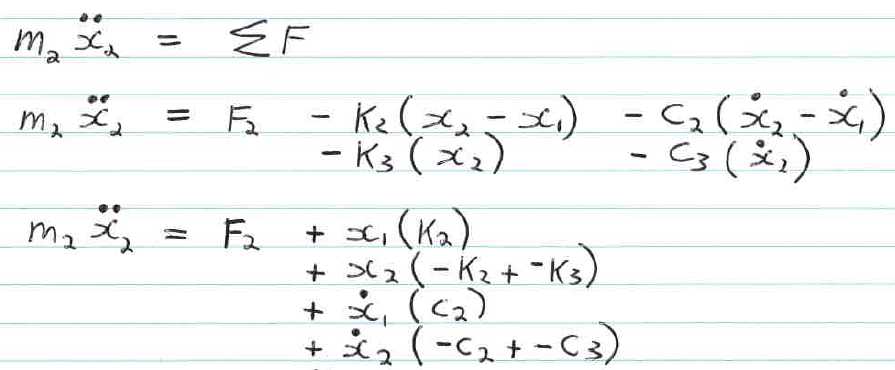 m₂ ẍ₂ = ΣF
m₂ ẍ₂ = F₂ - K₂(x₂ - x₁) - C₂(ẋ₂ - ẋ₁)
- K₃(x₂) - C₃(ẋ₂)
m₂ ẍ₂ = F₂ + x₁(K₂)
+ x₂(-K₂ + -K₃)
+ ẋ₁(C₂)
+ ẋ₂(-C₂ + -C₃)